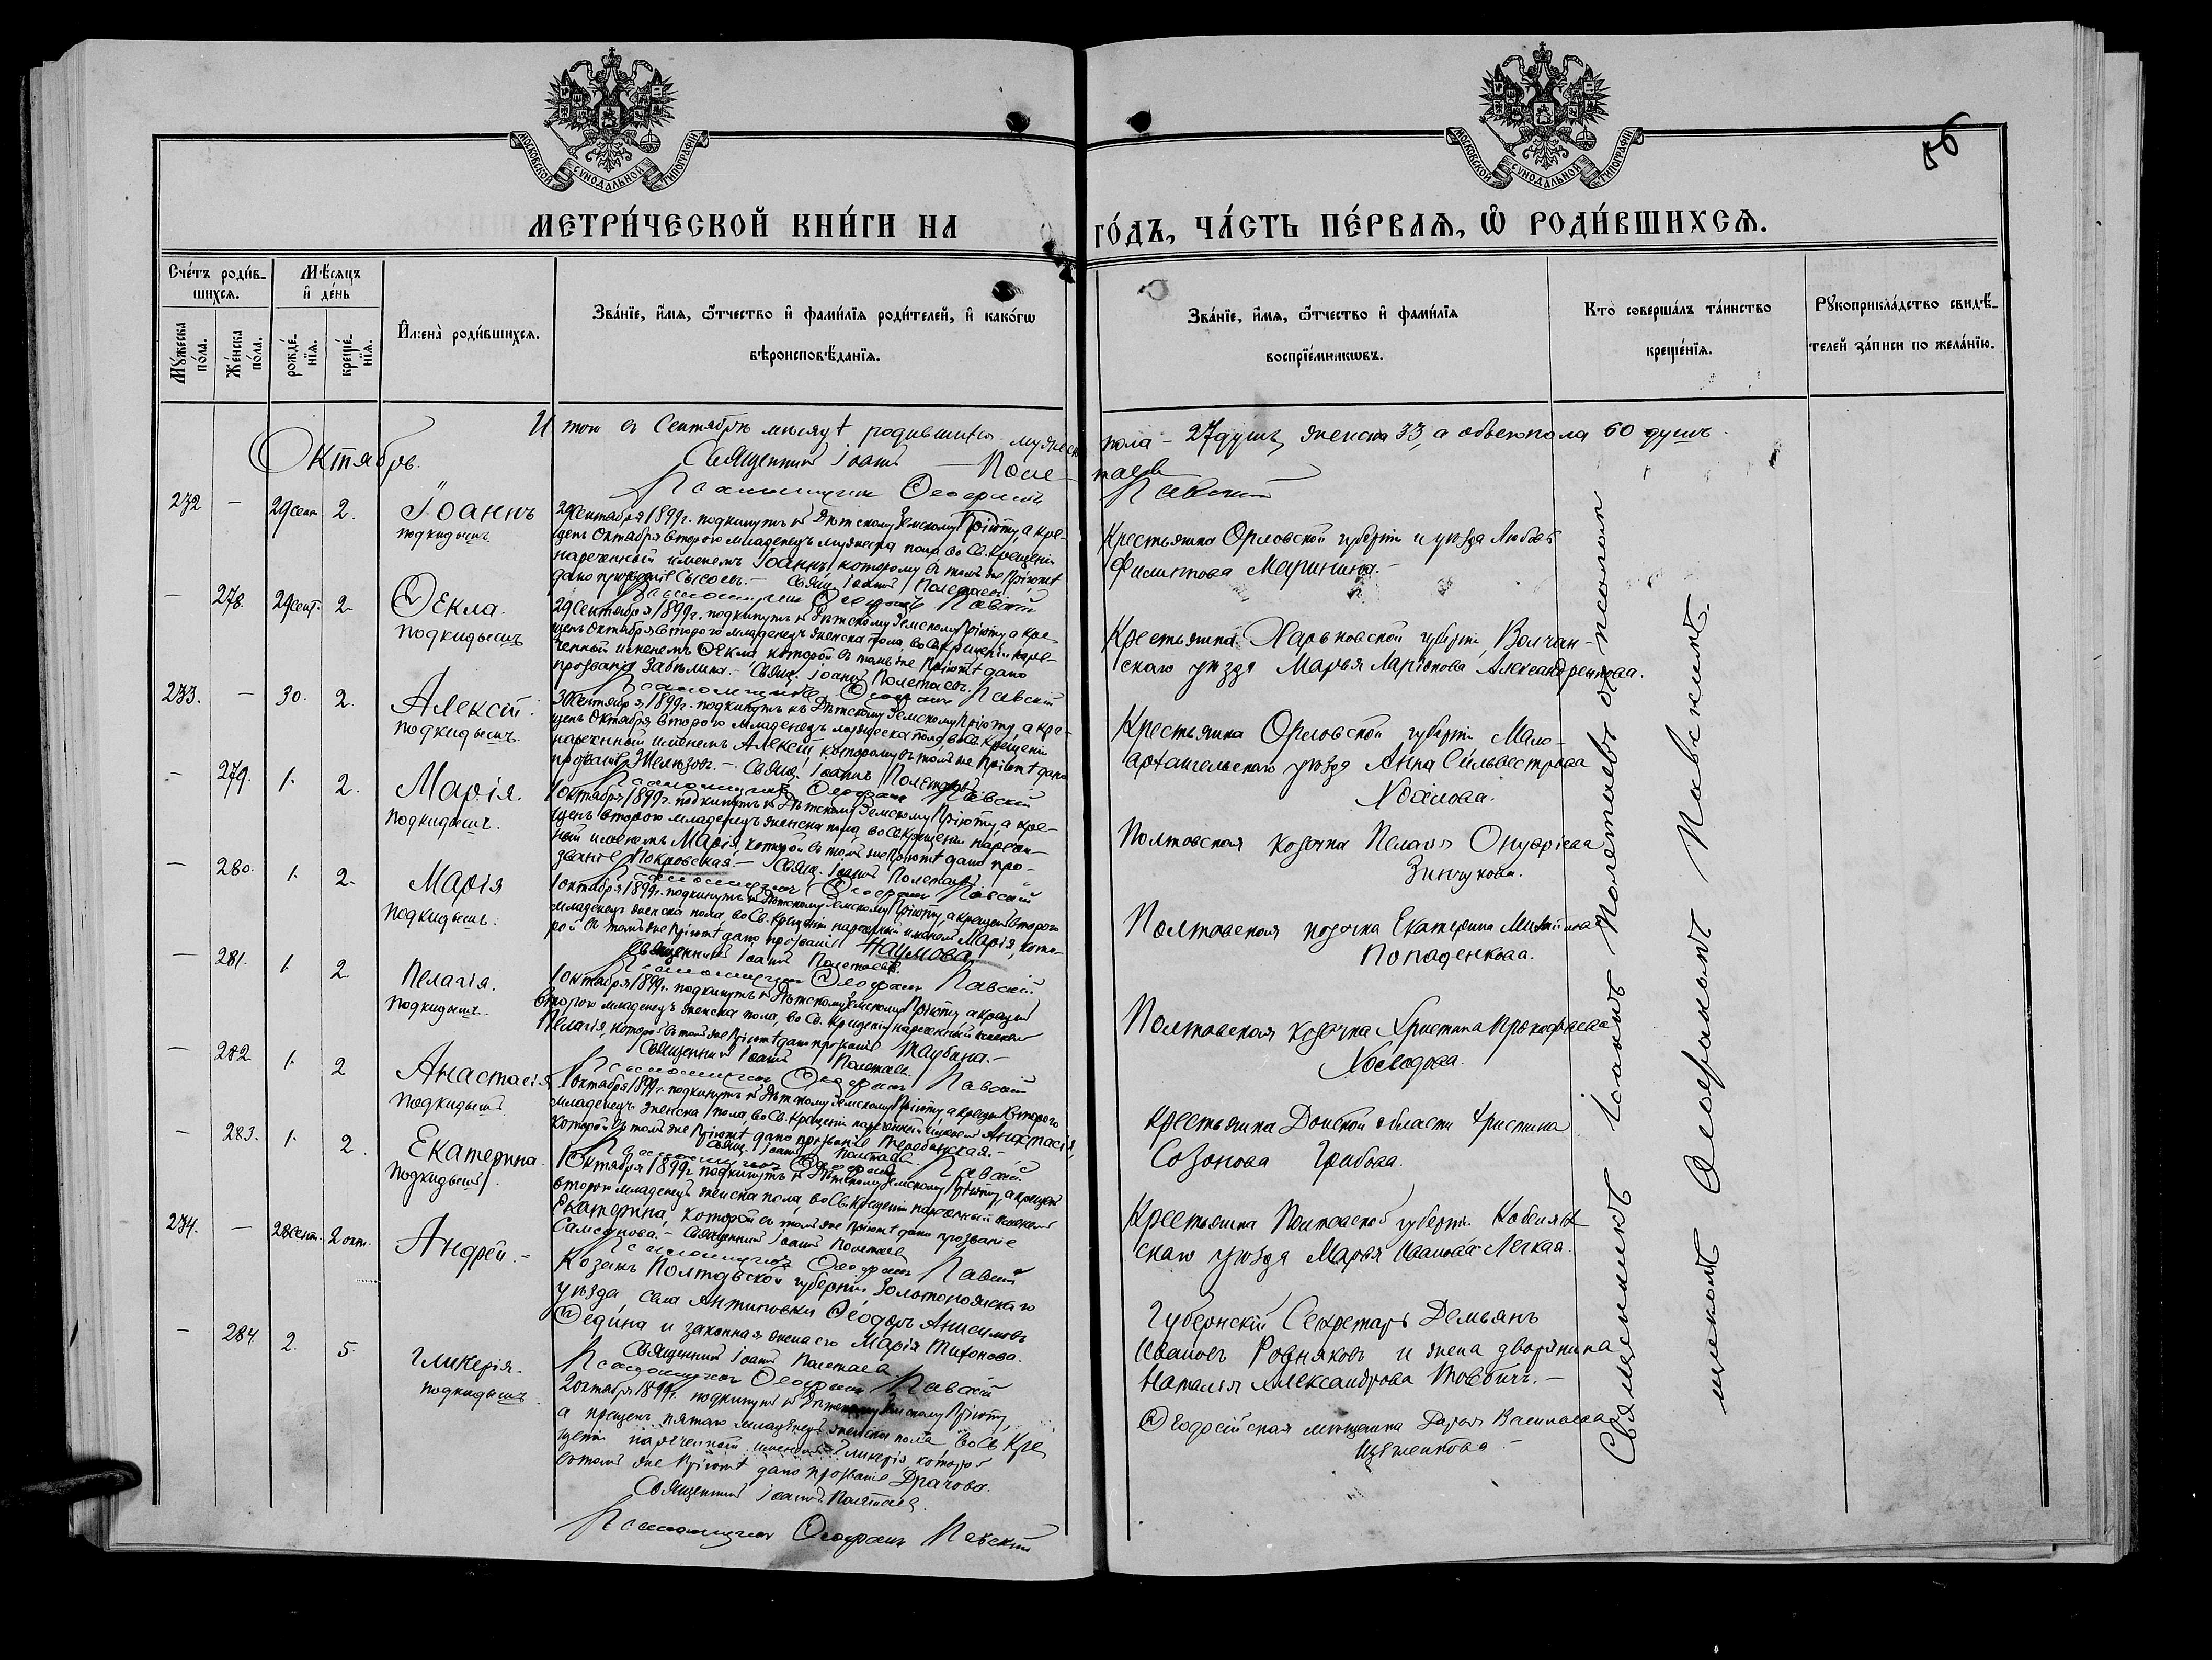 МОСКОВСКОЙ СѴНОДАЛЬНОЙ ТИПОГРАФІИ
МОСКОВСКОЙ СѴНОДАЛЬНОЙ ТИПОГРАФІИ
56
МЕТРИ́ЧЕСКОЙ КНИ́ГИ НА ГО́ДЪ, ЧА́СТЬ ПЕ́РВАѦ, Ѡ҆ РОДИ́ВШИХСѦ.
Сче́тъ роди́в-
шихсѧ.
Мѣ́сѧцъ
и҆ де́нь
Мꙋ́жеска по́ла.
Же́нска по́ла.
рожде́-нїѧ.
креще́-нїѧ.
И҆мена̀ роди́вшихсѧ.
Зва́нїе, и҆́мѧ, ѻ҆́тчество и҆ фами́лїѧ роди́телей, и҆ како́гѡ
вѣроисповѣ́данїѧ.
Зва́нїе, и҆́мѧ, ѻ҆́тчество и҆ фами́лїѧ
воспрїе́мникѡвъ.
Кто̀ соверша́лъ та́инство
креще́нїѧ.
Рꙋкоприкла́дство свидѣ́-
телей за́писи по жела́нїю.
Итого въ Сентябрѣ мѣсяцѣ родившихся мужеска пола - 27 душъ, женска 33, а обоего пола 60 душъ.
Октябрь.
Священникъ Іоаннъ Полетаевъ
Псаломщикъ Ѳеофанъ Павскій
232 - 29 сент. 2.
Іоаннъ
подкидышъ.
29 Сентября 1899 г. подкинутъ къ Дѣтскому Земскому Пріюту, а кре-
щенъ Октября второго младенецъ мужеска пола, во Св. Крещеніи
нареченный именемъ Іоаннъ, которому въ томъ же Пріютѣ
дано прозваніе Сысоевъ. - Свящ. Іоаннъ Полетаевъ
Псаломщикъ Ѳеофанъ Павскій
Крестьянка Орловской губерніи и уѣзда Любовь
Филиппова Маринина. -
- 278. 29 сент. 2.
Ѳекла.
подкидышъ
29 Сентября 1899 г. подкинутъ къ Дѣтскому Земскому Пріюту, а кре-
щенъ Октября второго младенецъ женска пола, во Св. Крещеніи наре-
ченный именемъ Ѳекла, которой въ томъ же Пріютѣ дано
прозваніе Забѣлина. - Свящ. Іоаннъ Полетаевъ.
Псаломщикъ Ѳеофанъ Павскій
Крестьянка Харьковской губерніи Волчан-
скаго уѣзда Марья Ларіонова Александренкова.
233. - 30. 2.
Алексій.
подкидышъ.
30 Сентября, 1899 г. подкинутъ къ Дѣтскому Земскому Пріюту, а кре-
щенъ Октября второго младенецъ мужеска пола, во Св. Крещеніи
нареченный именемъ Алексій, которому въ томъ же Пріютѣ дано
прозваніе Желѣзовъ. - Свящ. Іоаннъ Полетаевъ
Псаломщикъ Ѳеофанъ Павскій
Крестьянка Орловской губерніи Мало-
архангельскаго уѣзда Анна Сильвестрова
- 279. 1. 2.
Марія.
подкидышъ.
1 Октября 1899 г. подкинутъ къ Дѣтскому Земскому Пріюту, а кре-
щенъ второго младенецъ женска пола, во Св. Крещеніи наречен-
ный именемъ Марія, которой въ томъ же Пріютѣ дано про-
званіе Покровская. - Свящ. Іоаннъ Полетаевъ
Псаломщикъ Ѳеофанъ Павскій
Полтавская козачка Пелагія Онуфріева
Зинчукова.
- 280. 1. 2.
Марія
подкидышъ.
1 Октября 1899 г. подкинутъ къ Дѣтскому Земскому Пріюту, а крещенъ второго
младенецъ женска пола, во Св. Крещеніи нареченный именемъ Марія, кото-
рой въ томъ же Пріютѣ дано прозваніе Наумова.
Священникъ Іоаннъ Полетаевъ.
Псаломщикъ Ѳеофанъ Павскій
Полтавская козачка Екатерина
Попаденкова.
- 281. 1. 2.
Пелагія.
подкидышъ.
1 Октября 1899 г. подкинутъ къ Дѣтскому Земскому Пріюту, а крещенъ
второго младенецъ женска пола, во Св. Крещеніи нареченный именемъ
Пелагія, которой въ томъ же Пріютѣ дано прозваніе Таубина. -
Священникъ Іоаннъ Полетаевъ.
Псаломщикъ Ѳеофанъ Павскій
Полтавская козачка Христина Прокофьева
Холодова.
- 282. 1. 2
Анастасія
подкидышъ.
1 Октября 1899 г. подкинутъ къ Дѣтскому Земскому Пріюту, а крещенъ второго
младенецъ женска пола, во Св. Крещеніи нареченный именемъ Анастасія,
которой въ томъ же Пріютѣ дано прозваніе Теребинская. -
Свящ. Іоаннъ Полетаевъ.
Псаломщикъ Ѳеофанъ Павскій
Крестьянка Донской области Христина
Созонова Грибова.
- 283. 1. 2.
Екатерина.
подкидышъ.
1 Октября 1899 г. подкинутъ къ Дѣтскому Земскому Пріюту, а крещенъ
второго младенецъ женска пола, во Св. Крещеніи нареченный именемъ
Екатерина, которой въ томъ же Пріютѣ дано прозваніе
Самсонова. - Священникъ Іоаннъ Полетаевъ
Псаломщикъ Ѳеофанъ Павскій
Крестьянка Полтавской губерніи Кобеляк-
скаго уѣзда Марья Иванова Легкая.
234. - 28 сент. 2 окт.
Андрей. -
Козакъ Полтавской губерніи Золотоношскаго
уѣзда села Антиповки Ѳеодоръ Анисимовъ
Ѳедина и законная жена его Марія Тихонова.
Священникъ Іоаннъ Полетаевъ
Псаломщикъ Ѳеофанъ Павскій
Губернскій Секретарь Демьянъ
Ивановъ Ровняковъ и жена дворянина
Наталія Александрова Товбичъ. -
- 284. 2. 5.
Гликерія.
подкидышъ
2 Октября 1899 г. подкинутъ къ Дѣтскому Земскому Пріюту,
а крещенъ пятаго младенецъ женска пола, во Св. Кре-
щеніи нареченный именемъ Гликерія, которой
въ томъ же Пріютѣ дано прозваніе Драчова.
Священникъ Іоаннъ Полетаевъ.
Псаломщикъ Ѳеофанъ Павскій
Ѳеодосійская мѣщанка Дарья Васильева
Священникъ Іоаннъ Полетаевъ съ псалом-
щикомъ Ѳеофаномъ Павскимъ.